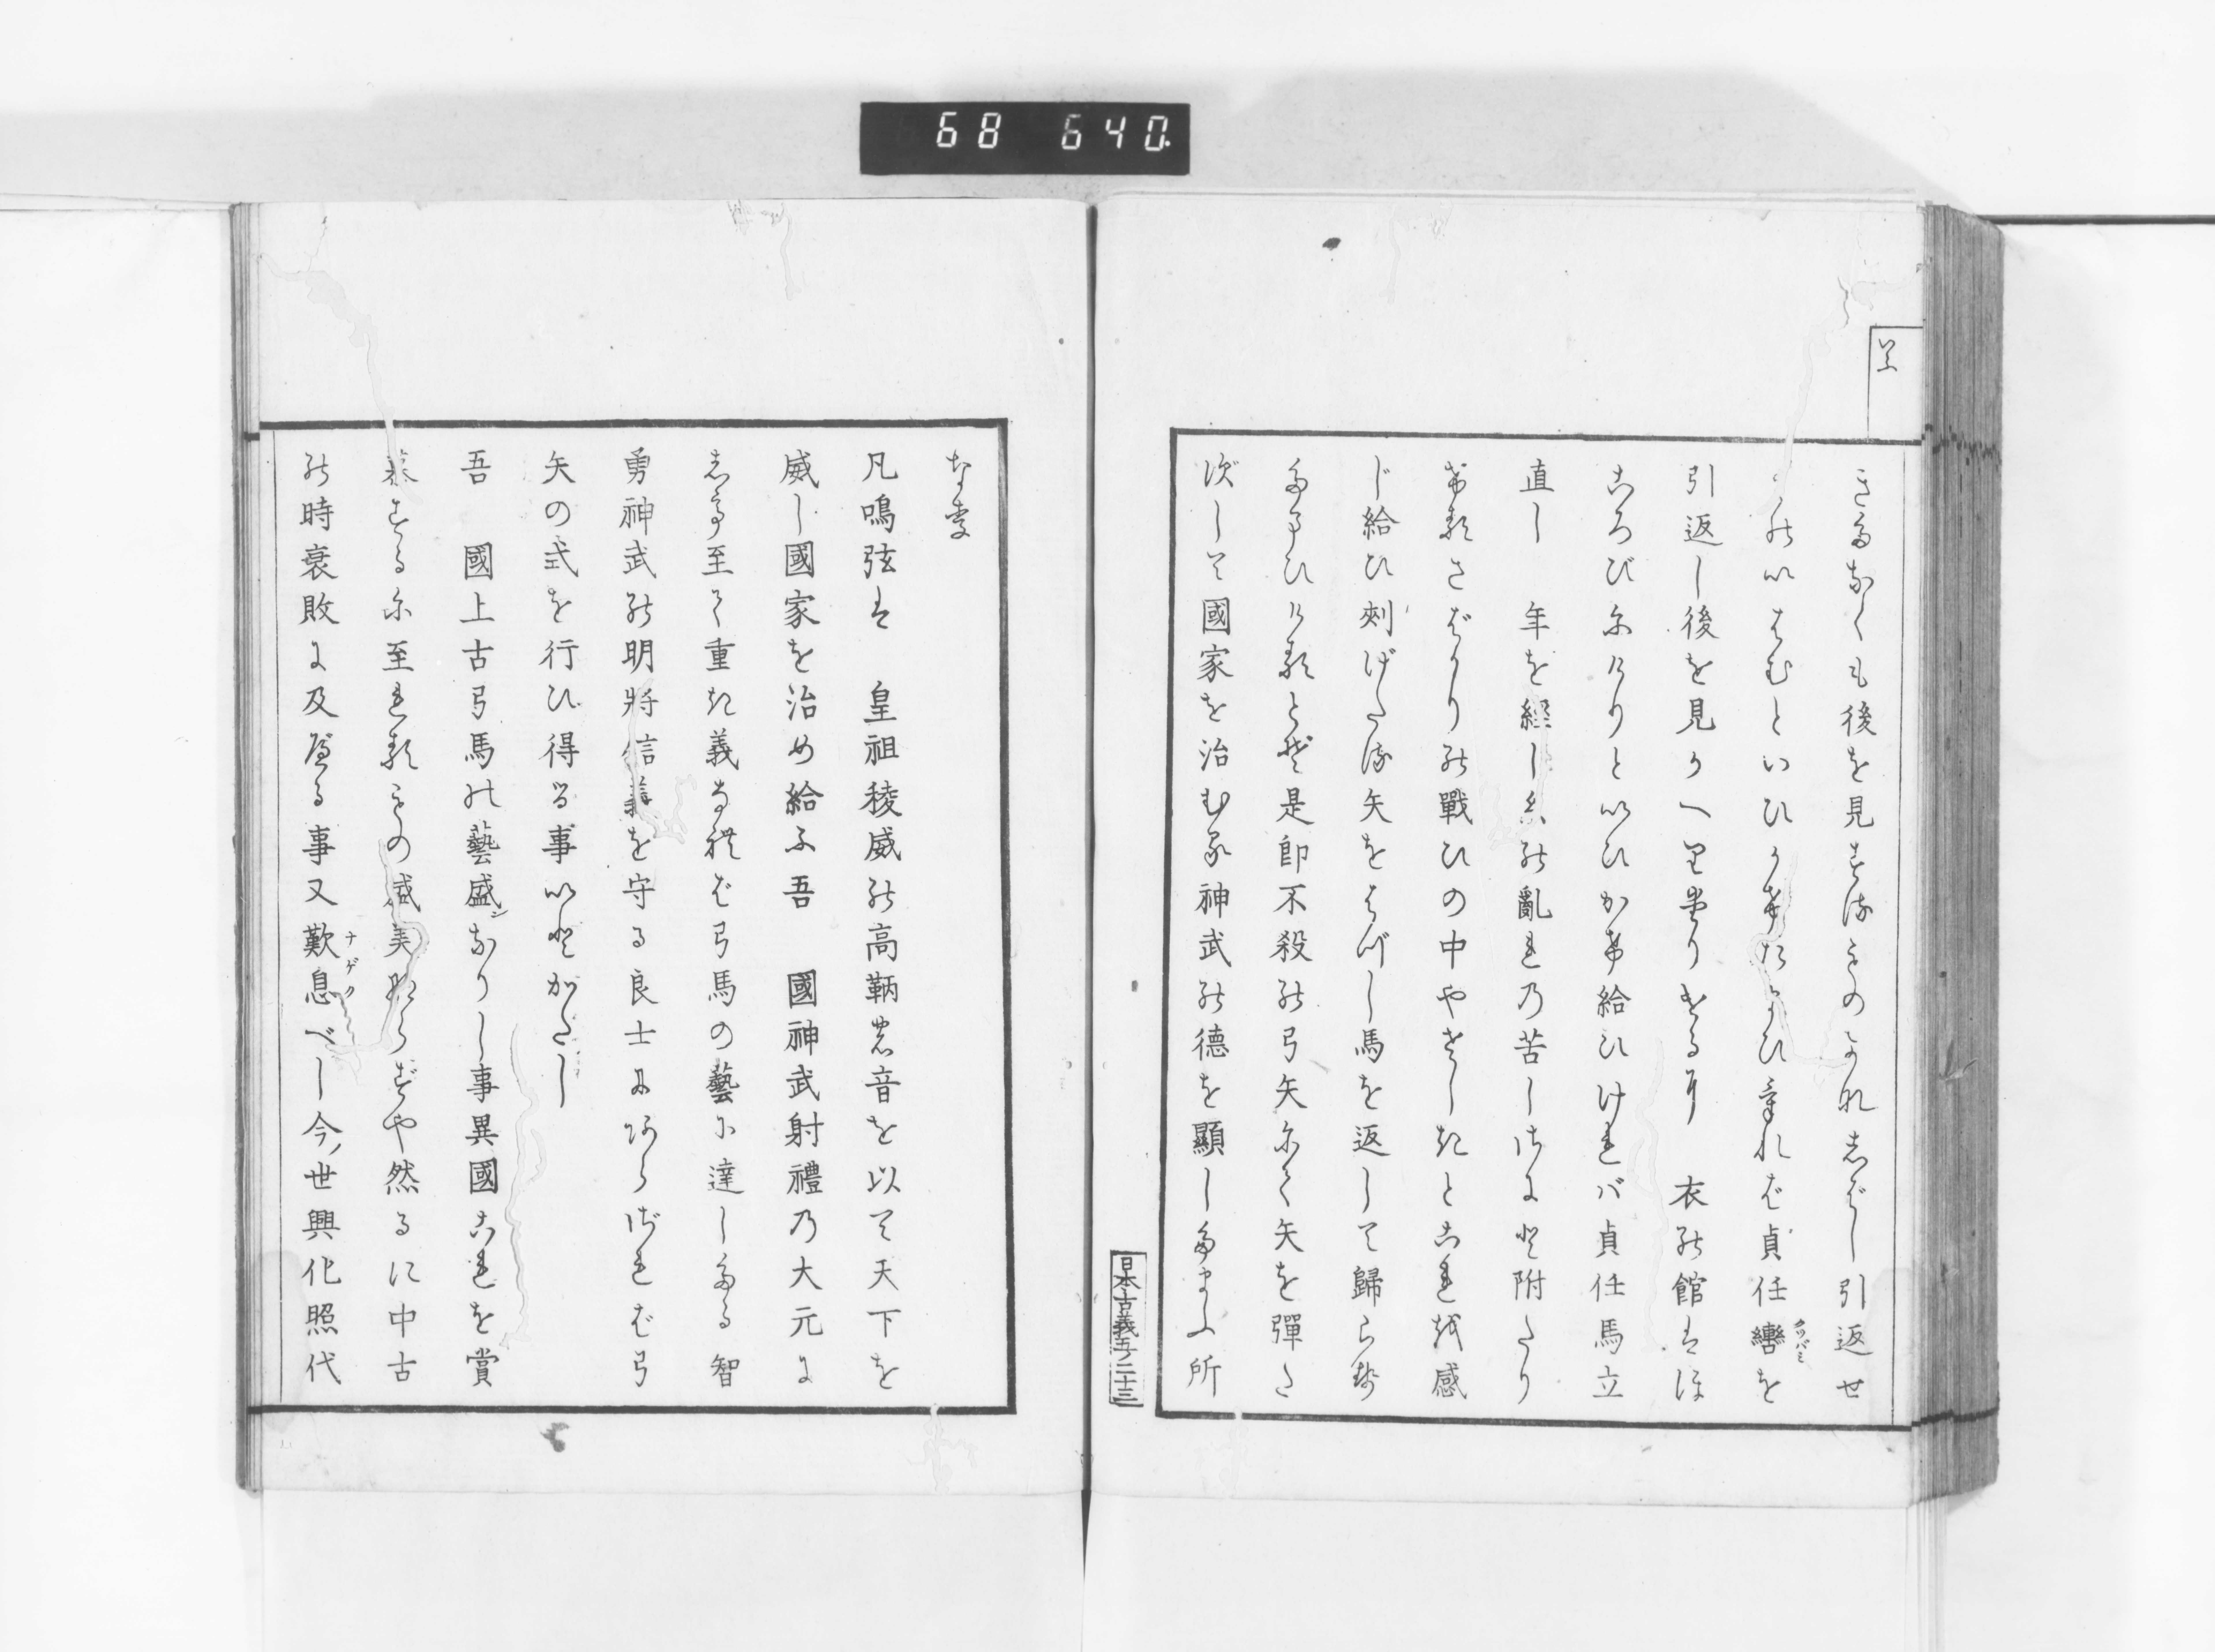 68 640.
きたなくも後を見するものかなしばし引返せ
ものいはむといひかけたまひければ貞任轡を
クツバミ
引返し後を見かへりたりけるに 衣の館はほ
ころびにけりといひかけ給ひければ貞任馬立
直し 年を經し糸の亂れの苦しさにと附たり
けるさばかりの戰ひの中やさしきとこれを感
じ給ひ刺げたる矢をはづし馬を返して歸らせ
たまひけるとぞ是即不殺の弓矢にて矢を彈さ
ずして國家を治むる神武の德を顯したまふ所
日本古義五ノ二十三
なり
凡鳴弦は 皇祖稜威の高鞆の音を以て天下を
威し國家を治め給ふ吾 國神武射禮の大元に
して至て重き義なればば弓馬の藝に達したる智
勇神武の明將信義を守る良士にあらざれば弓
矢の式を行ひ得る事いとかたし
吾 國上古弓馬の藝盛ンなりし事異國これを賞
慕するに至れるその盛美ならずや然るに中古
の時衰敗に及べる事又歎息べし今ノ世興化照代
ナゲク